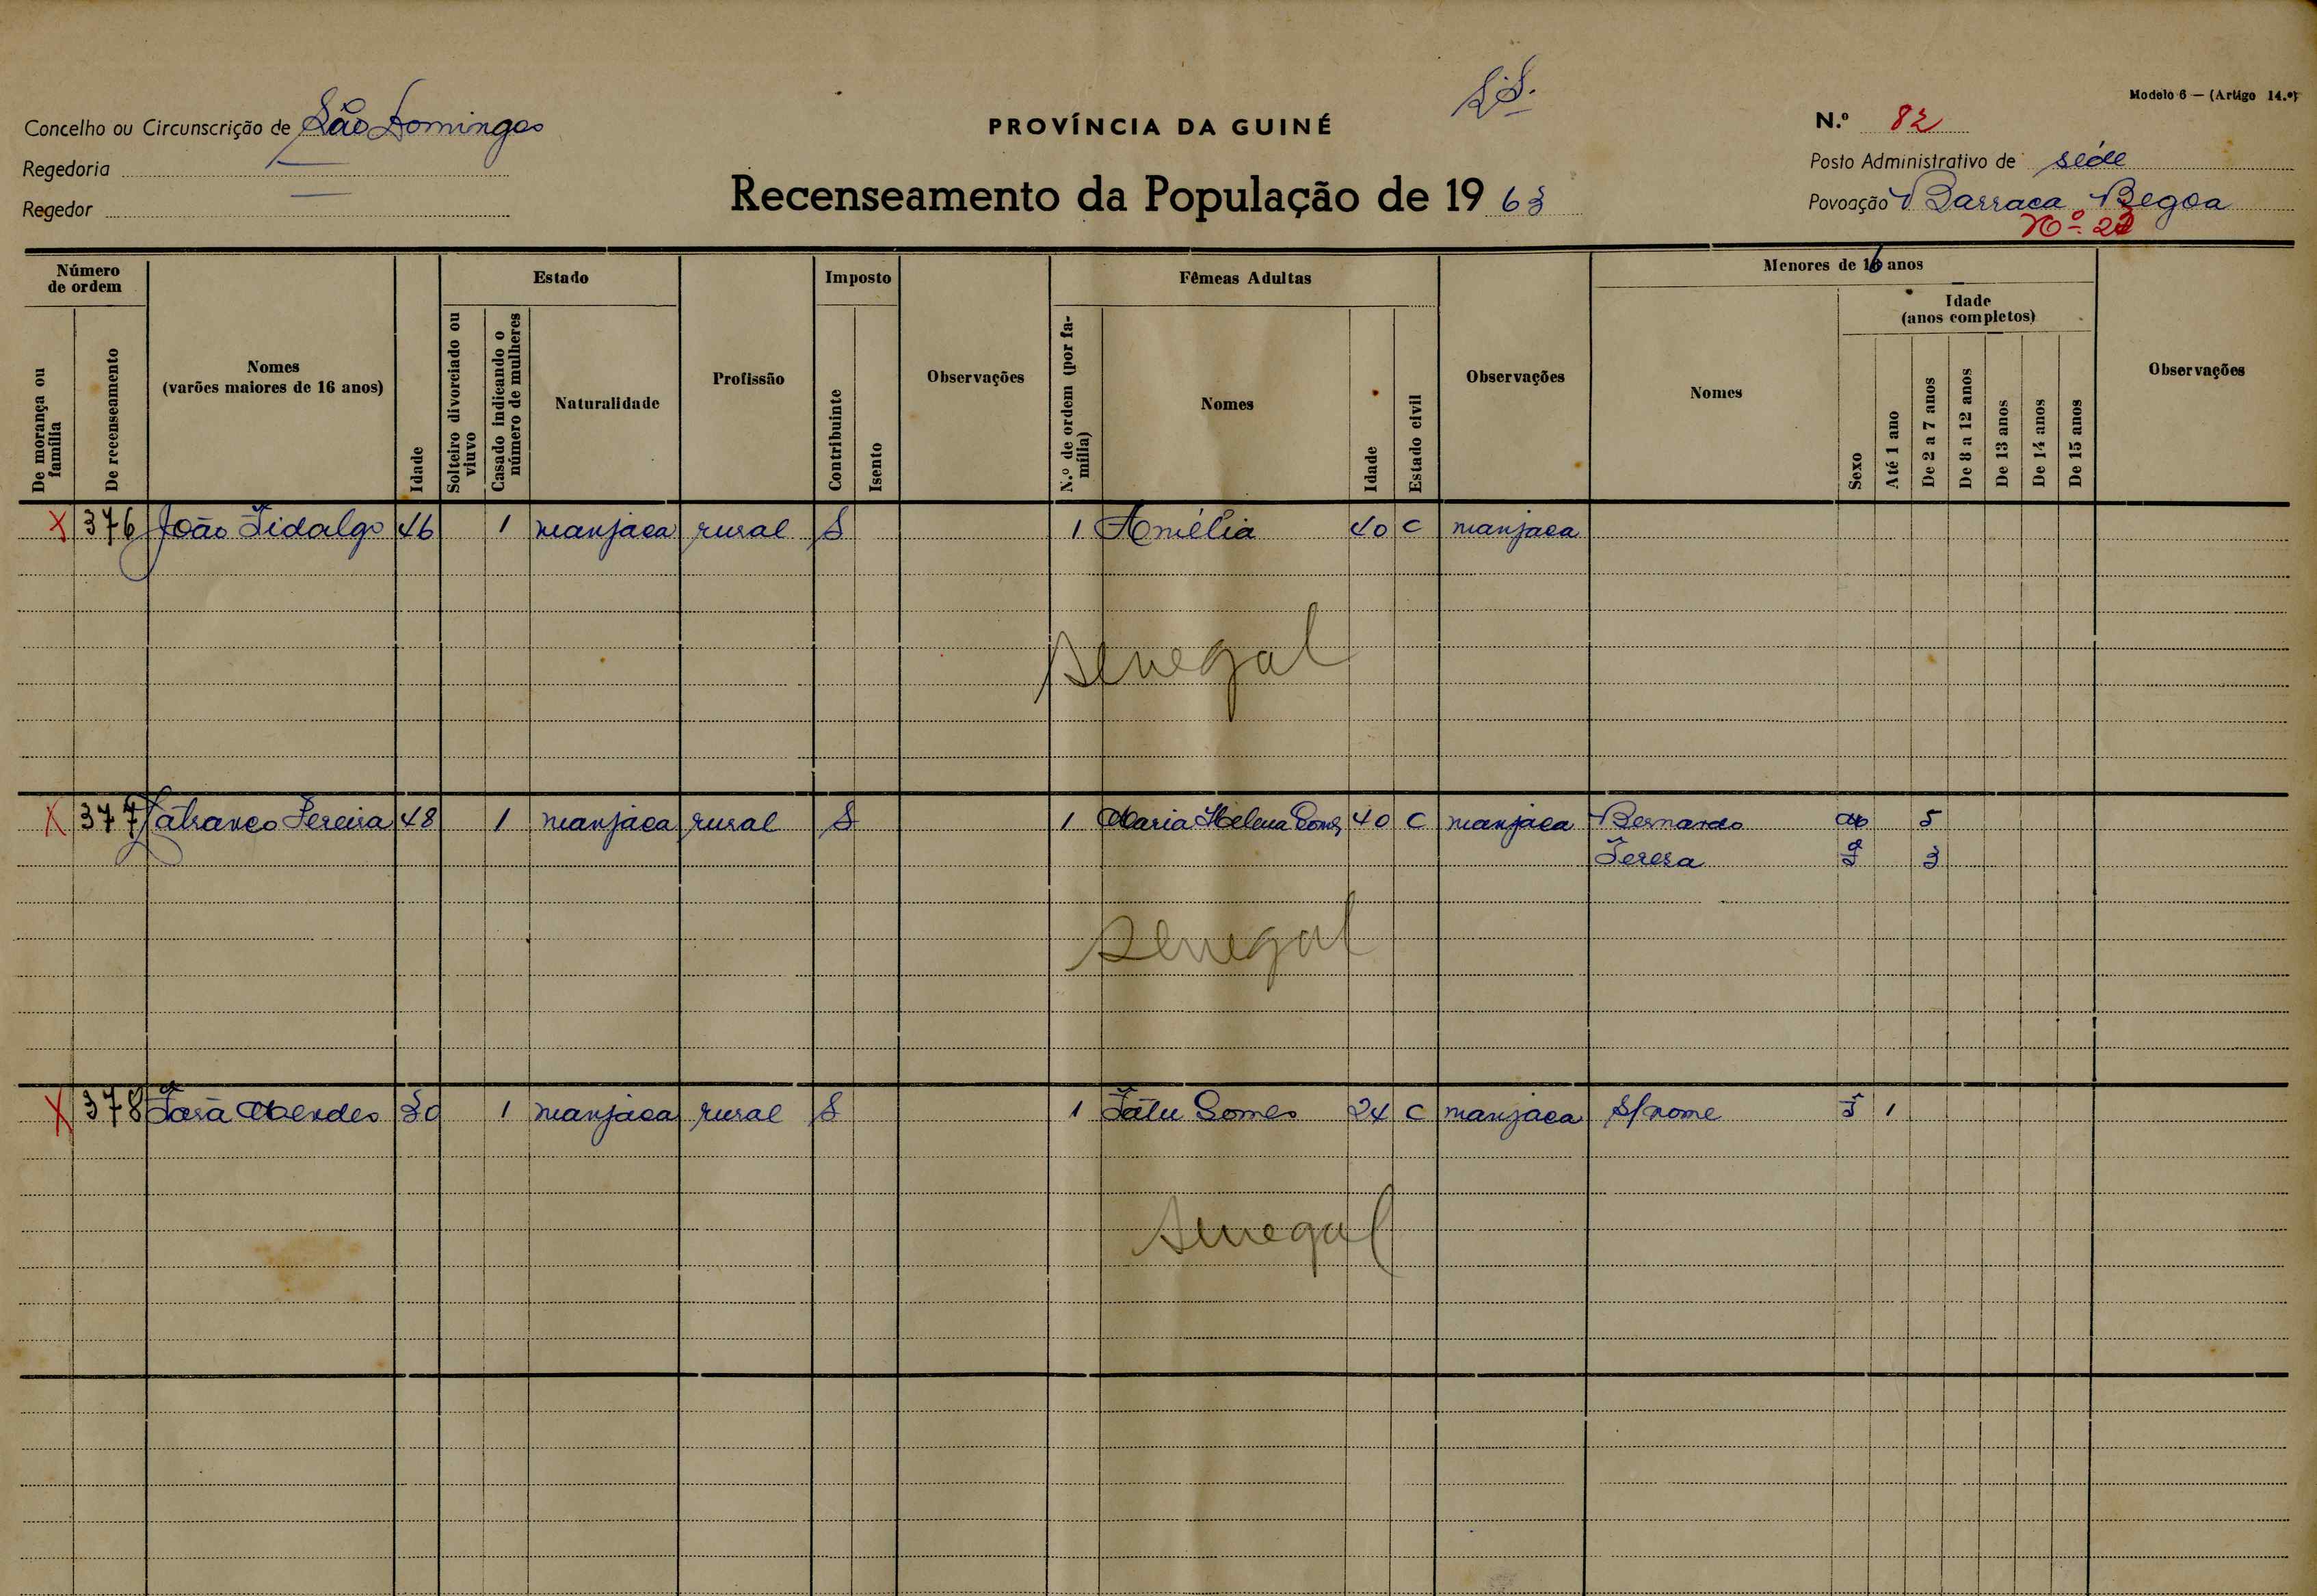 Modelo 6 — (Artigo 14.º)
Concelho ou Circunscrição de São Domingos
PROVÍNCIA DA GUINÉ
N.º 82
Regedoria
Posto Administrativo de séde
Regedor
Recenseamento da População de 1963
Povoação Barraca Begoa
Número de ordem
De morança ou família
De recenseamento
Nomes
(varões maiores de 16 anos)
Idade
Estado
Solteiro divorciado ou viuvo
Casado indicando o número de mulheres
Naturalidade
Profissão
Imposto
Contribuinte
Isento
Observações
Fêmeas Adultas
N.º de ordem (por família)
Nomes
Idade
Estado civil
Observações
Menores de 16 anos
Nomes
Idade
(anos completos)
Sexo
Até 1 ano
De 2 a 7 anos
De 8 a 12 anos
De 13 anos
De 14 anos
De 15 anos
Observações
X 376 João Fidalgo 46 1 manjaca rural S 1 Amélia 40 C manjaca
senegal
X 377 Pereira 48 1 manjaca rural S 1 Maria Helena Gomes 40 C manjaca Bernardo M 5
Teresa F 3
senegal
X 378 Mendes 30 1 manjaca rural S 1 Fátu Gomes 24 C manjaca S/nome F 1
senegal